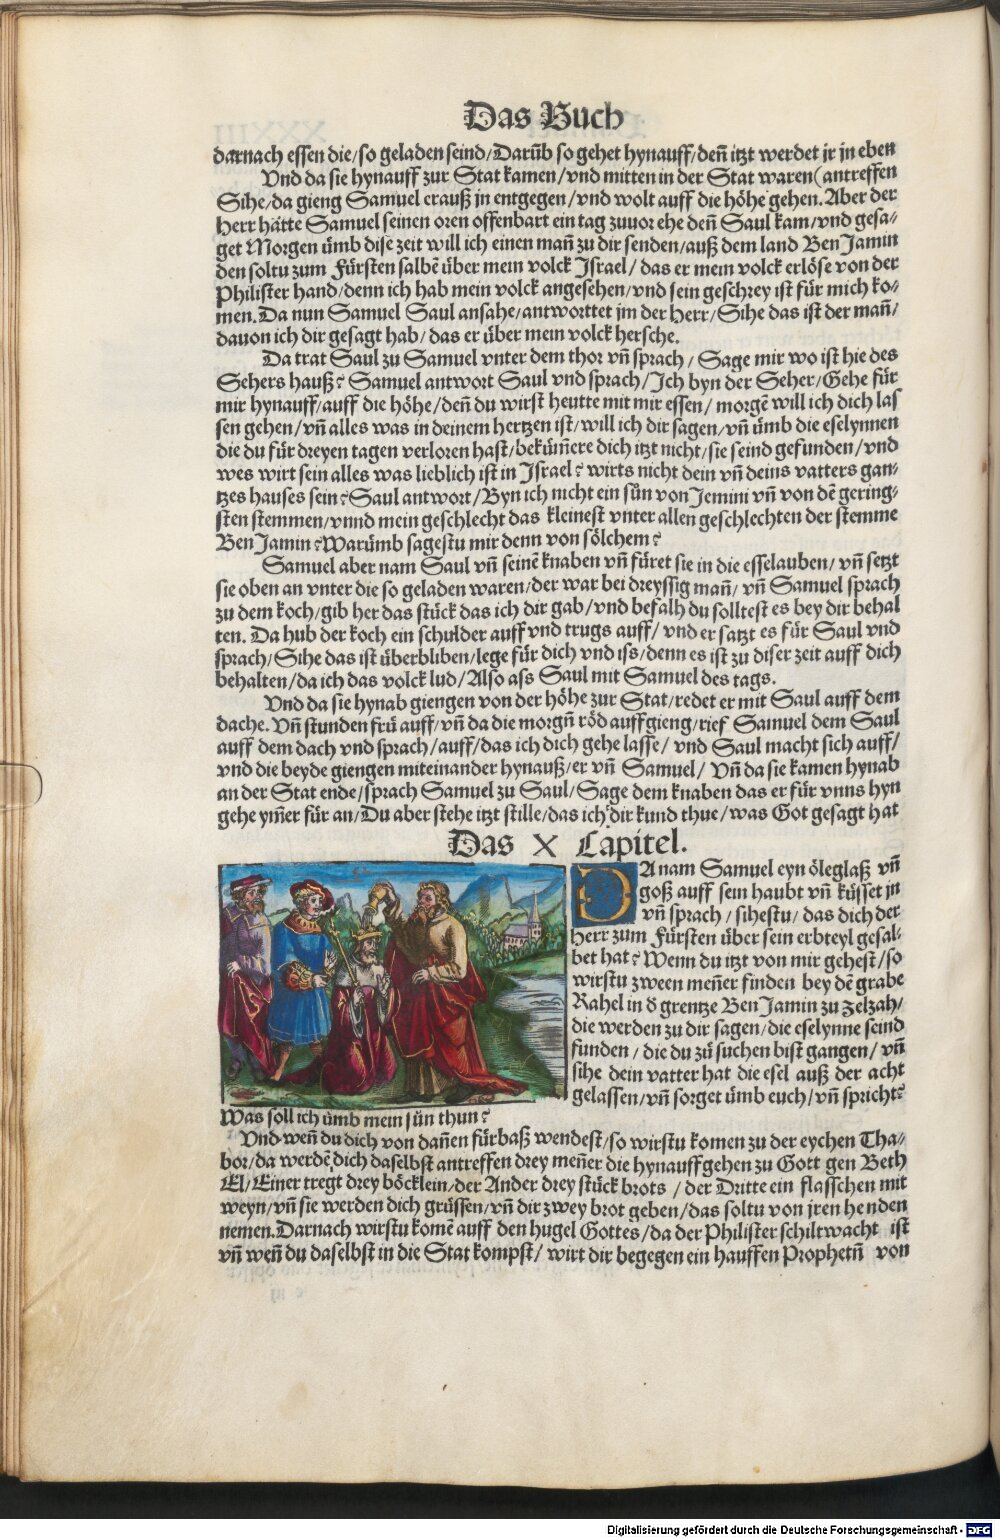 Das Buch
darnach essen die/so geladen seind/Darũb so gehet hynauff/deñ itzt werdet jr jn eben
Vnd da sie hynauff zur Stat kamen/vnd mitten in der Stat waren(antreffen
Sihe/da gieng Samuel erauß jn entgegen/vnd wolt auff die höhe gehen. Aber der
Herr hätte Samuel seinen oren offenbart ein tag zuuor ehe deñ Saul kam/vnd gesa⸗
get Morgen ümb dise zeit will ich einen mañ zu dir senden/auß dem land BenJamin
den soltu zum Fürsten salbē über mein volck Jsrael/das er mein volck erlöse von der
Philister hand/denn ich hab mein volck angesehen/vnd sein geschrey ist für mich ko⸗
men. Da nun Samuel Saul ansahe/antworttet jm der Herr/Sihe das ist der mañ/
dauon ich dir gesagt hab/das er über mein volck hersche.
Da trat Saul zu Samuel vnter dem thor vñ sprach/Sage mir wo ist hie des
Sehers hauß? Samuel antwort Saul vnd sprach/Jch byn der Seher/Gehe für
mir hynauff/auff die höhe/deñ du wirst heutte mit mir essen/morgē will ich dich las
sen gehen/vñ alles was in deinem hertzen ist/will ich dir sagen/vñ ümb die eselynnen
die du für dreyen tagen verloren hast/bekũm̃ere dich itzt nicht/sie seind gefunden/vnd
wes wirt sein alles was lieblich ist in Jsrael? wirts nicht dein vñ deins vatters gan⸗
tzes hauses sein? Saul antwort/Byn ich nicht ein sün von Jemini vñ von dē gering⸗
sten stemmen/vnnd mein geschlecht das kleinest vnter allen geschlechten der stemme
BenJamin? Warümb sagestu mir denn von sölchem?
Samuel aber nam Saul vñ seinē knaben vñ füret sie in die esselauben/vñ setzt
sie oben an vnter die so geladen waren/der war bei dreyssig mañ/vñ Samuel sprach
zu dem koch/gib her das stück das ich dir gab/vnd befalh du solltest es bey dir behal
ten. Da hub der koch ein schulder auff vnd trugs auff/vnd er satzt es für Saul vnd
sprach/Sihe das ist überbliben/lege für dich vnd iss/denn es ist zu diser zeit auff dich
behalten/da ich das volck lud/Also ass Saul mit Samuel des tags.
Vnd da sie hynab giengen von der höhe zur Stat/redet er mit Saul auff dem
dache. Vñ stunden frü auff/vñ da die morgñ röd auffgieng/rief Samuel dem Saul
auff dem dach vnd sprach/auff/das ich dich gehe lasse/vnd Saul macht sich auff/
vnd die beyde giengen miteinander hynauß/er vñ Samuel/Vñ da sie kamen hynab
an der Stat ende/sprach Samuel zu Saul/Sage dem knaben das er für vnns hyn
gehe ym̃er für an/Du aber stehe itzt stille/das ich dir kund thue/was Got gesagt hat
Das X Capitel.
DA nam Samuel eyn öleglaß vñ
goß auff sein haubt vñ küsset jn
vñ sprach/sihestu/das dich der
Herr zum Fürsten über sein erbteyl gesal⸗
bet hat? Wenn du itzt von mir gehest/so
wirstu zween meñer finden bey dē grabe
Rahel in ð grentze BenJamin zu Zelzah/
die werden zu dir sagen/die eselynne seind
funden/die du zů suchen bist gangen/vñ
sihe dein vatter hat die esel auß der acht
gelassen/vñ sorget ümb euch/vñ spricht?
Was soll ich ümb mein sün thun?
Vnd weñ du dich von dañen fürbaß wendest/so wirstu komen zu der eychen Tha⸗
bor/da werdē dich daselbst antreffen drey meñer die hynauffgehen zu Gott gen Beth
El/Einer tregt drey böcklein/der Ander drey stück brots/der Dritte ein flasschen mit
weyn/vñ sie werden dich grüssen/vñ dir zwey brot geben/das soltu von jren henden
nemen. Darnach wirstu komē auff den hugel Gottes/da der Philister schiltwacht ist
vñ weñ du daselbst in die Stat kompst/wirt dir begegen ein hauffen Prophetñ von
Digitalisierung gefördert durch die Deutsche Forschungsgemeinschaft - DFG